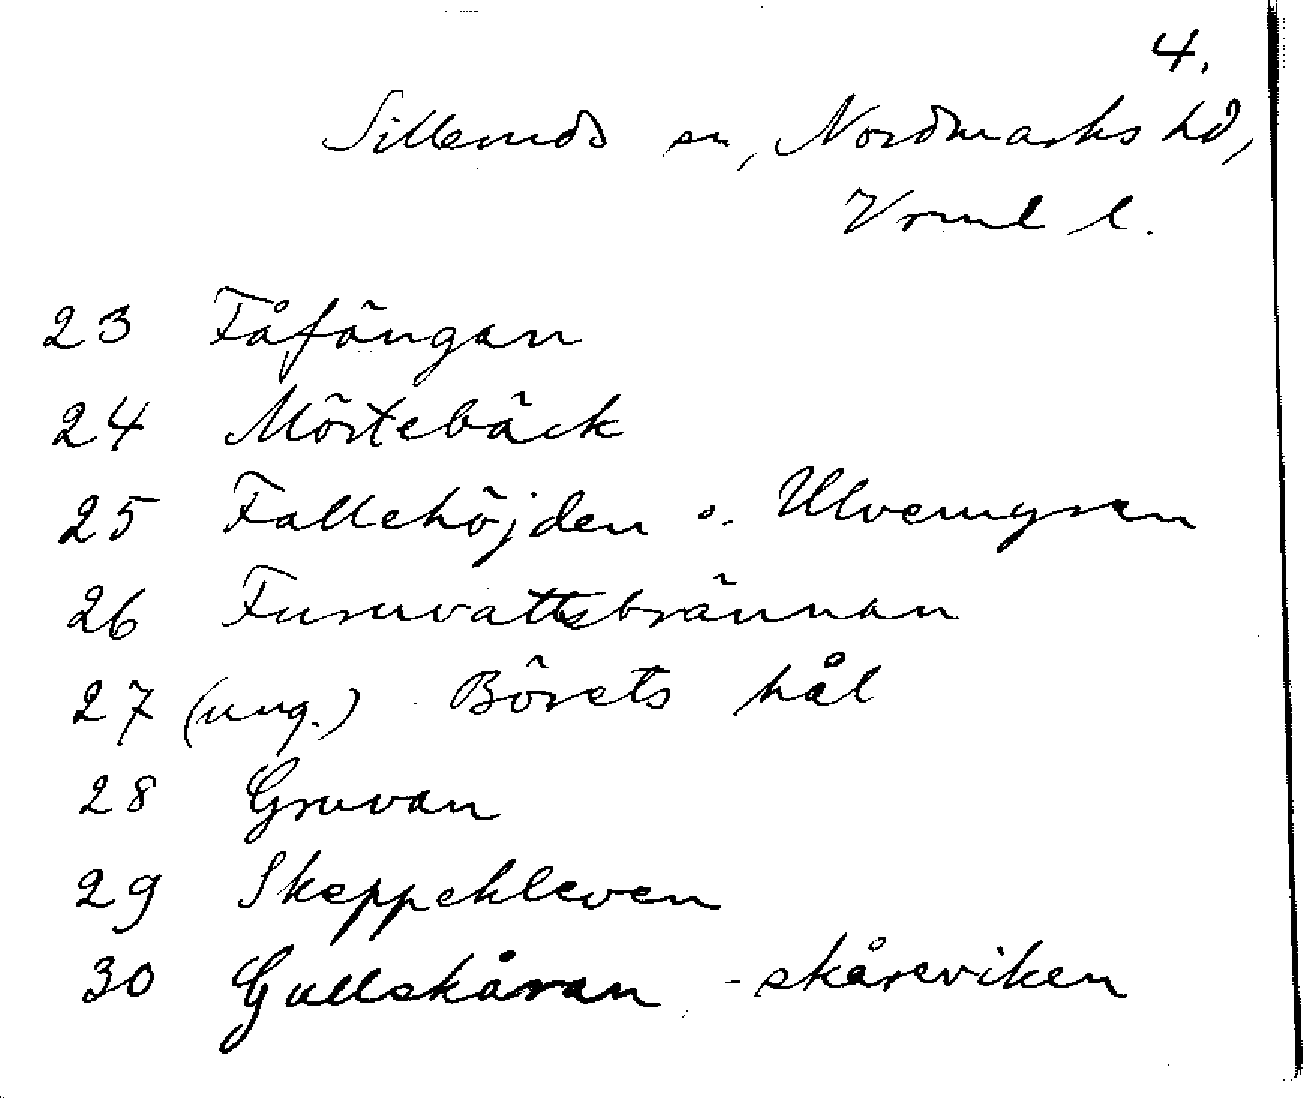 4.
Sillerud sn, Nordmarks hd,
Vrml l.
23 Fåfängan
24 Mörtebäck
25 Fallehöjden o. Ulvemyren
26 Furuvattsbrännan
27 (ung.) Börets hål
28 Gruvan
29 Skeppekleven
30 Gullskåran -skåreviken